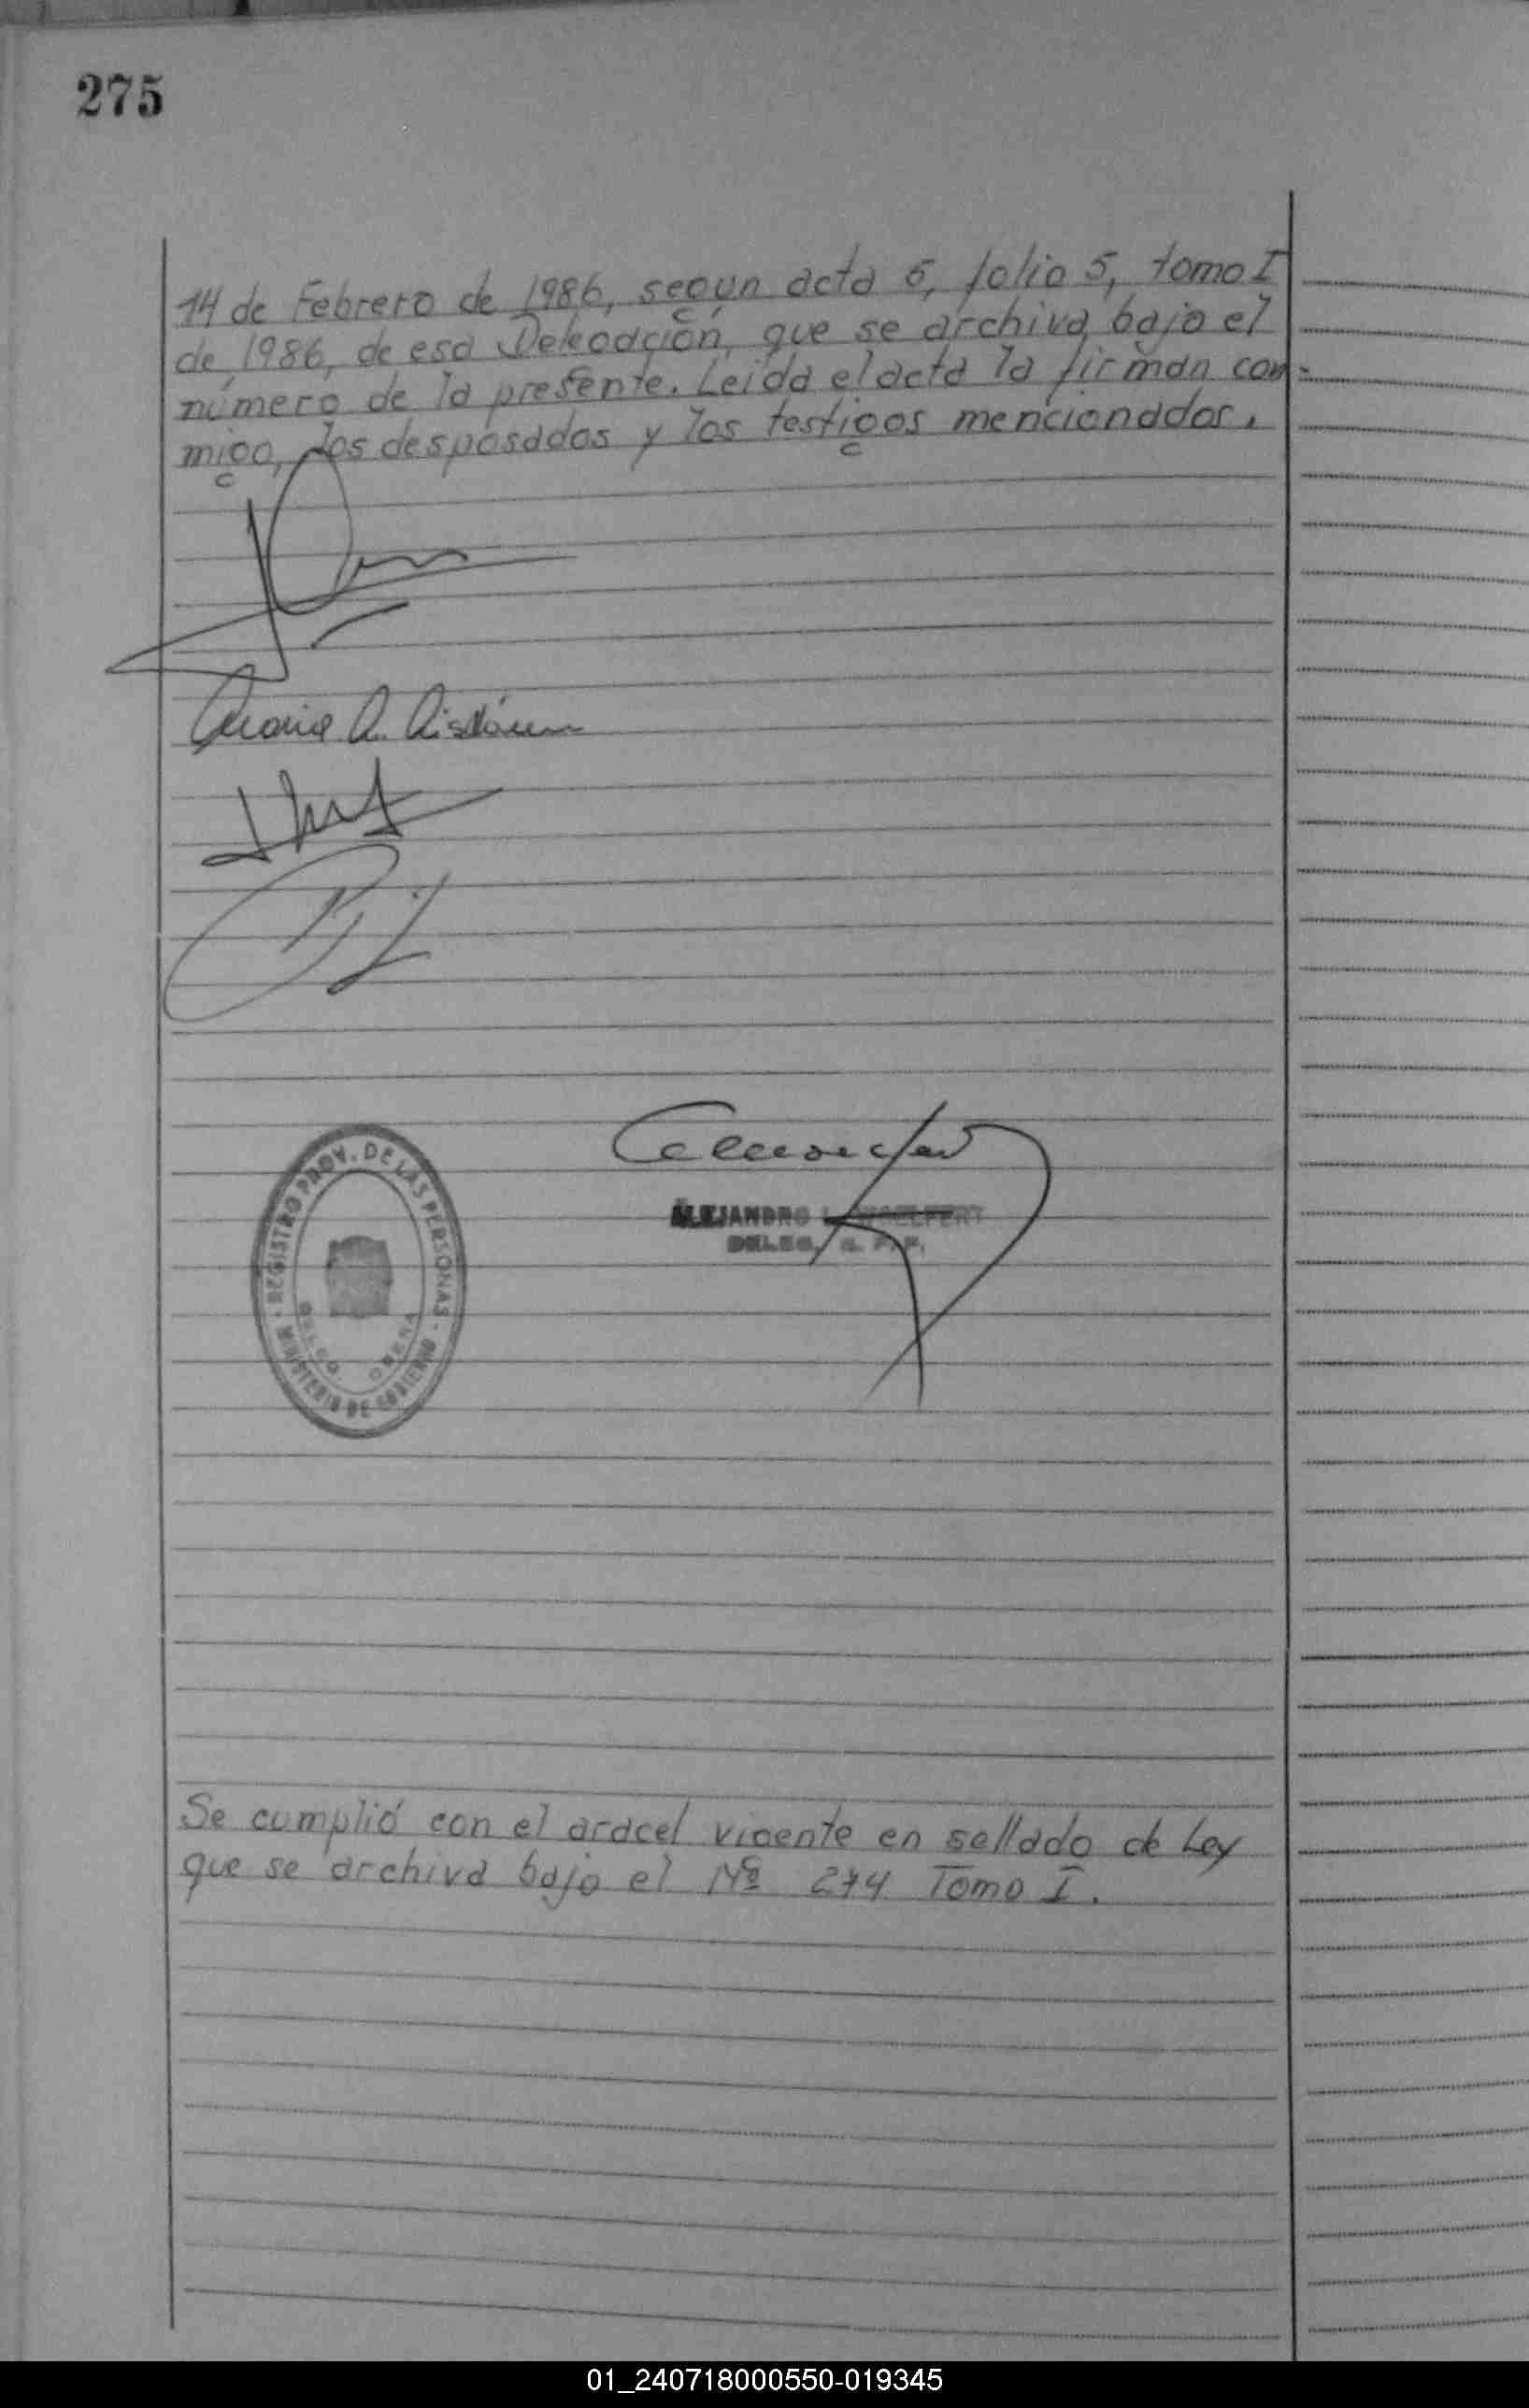 275
14 de Febrero de 1986, según acta 5, folio 5, tomo I
de 1986, de esa Delegación, que se archiva bajo el
número de la presente. Leida el acta la firman con-
migo, los desposados y los testigos mencionados.
Maria A.
REGISTRO PROV. DE LAS PERSONAS
DELEG. OBERA
MINISTERIO DE GOBIERNO
ALEJANDRO
DELEG.
Se cumplió con el aracel vigente en sellado de Ley
que se archiva bajo el Nº 274 Tomo I.
01_240718000550-019345